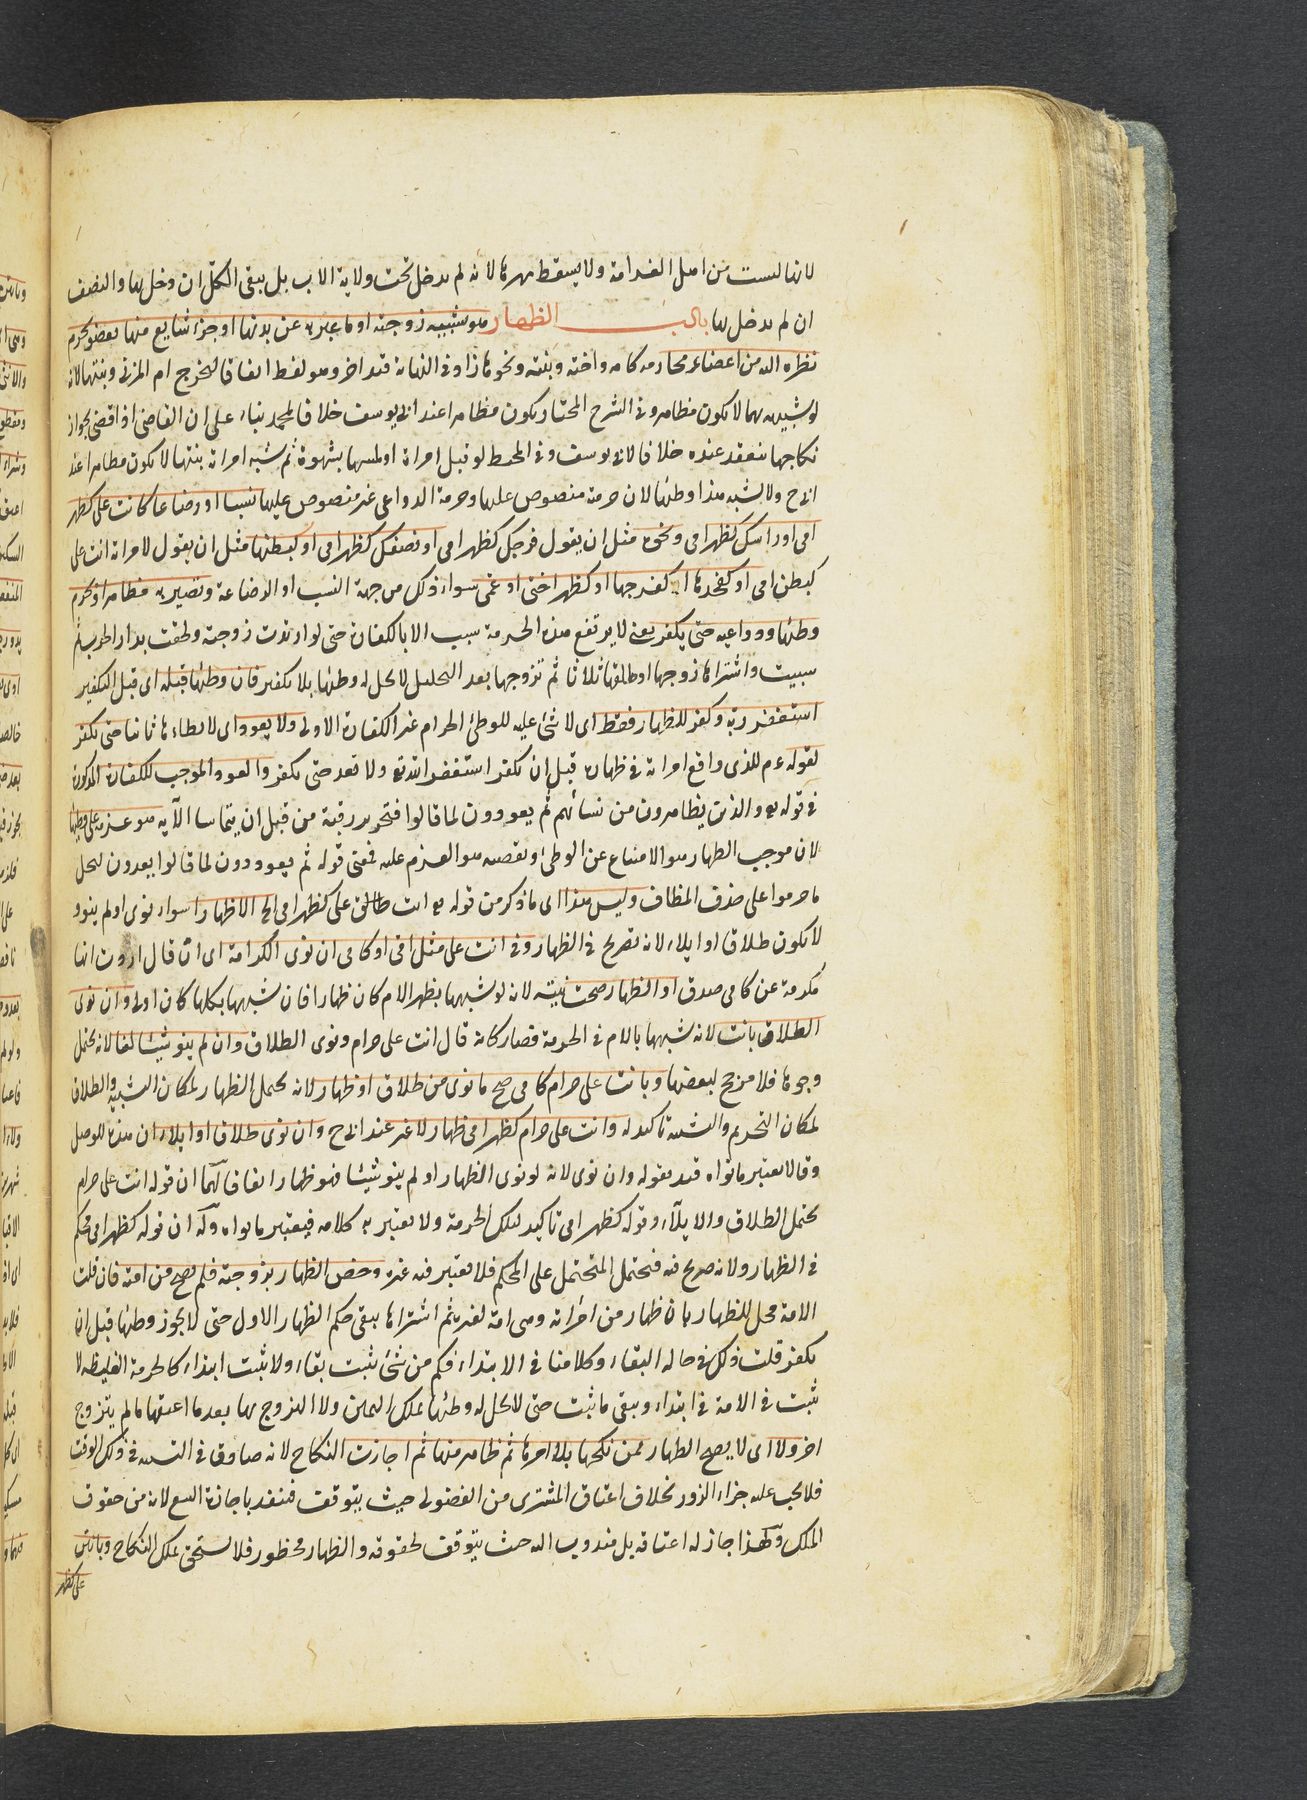 لانها ليست من اهل الغرامة ولا يسقط مهرها لانه لم يدخل تحت ولاية الاب بل يبقى الكل ان دخل بها والنصف
ان لم يدخل بها باب الظهار هو تشبيه زوجته او ما عبر به عن بدنها او جزء شايع منها بعضو يحرم
نظره اليه من اعضاء محارمه كامه واخته وبنته ونحوها زاد في النهاية قيد اخر وهو لفظ اتفاقا ليخرج ام المزنى وبنتها لانه
لو شبهه بهما لا يكون مظاهرا وفي الشرح المختار يكون مظاهرا عند ابي يوسف خلافا لمحمد بناء على ان القاضى اذا قضى بجواز
نكاحها ينعقد عنده خلافا لابي يوسف وفي المحيط لو قبل امراة او لمسها بشهوة ثم شبه امراته بنتها لا يكون مظاهرا عند
ابي ح ولا يشبه هذا وطئها لان حرمته منصوص عليها وحرمة الدواعي غير منصوص عليها نسبا او رضاعا كانت علي كظهر
امي او راسك كظهر امي ونحوه مثل ان يقول فرجك كظهر امي او نصفك كظهر امي او كبطنها مثل ان يقول لامراته انت على
كبطن امي او كفخذها او كفرجها او كظهر اختي او عمتي سواء ذلك من جهة النسب او الرضاعة ويصير به مظاهرا ويحرم
وطئها ودواعيه حتى يكفر يعنى لا يرتفع هذه الحرمة بسبب الا بالكفارة حتى لو ارتدت زوجته ولحقت بدار الحرب ثم
سبيت واشتراها زوجها او طلقها ثلاثا ثم تزوجها بعد التحليل لا يحل له وطئها بلا تكفير فان وطئها قبله اى قبل التكفير
استغفر ربه وكفر للظهار فقط اى لا شئ عليه للوطئ الحرام غير الكفارة الاولى ولا يعود اى لا يطاءها ثانيا حتى يكفر
لقوله عم للذى واقع امراته في ظهاره قبل ان يكفر استغفر الله ولا تعد حتى تكفر والعود الموجب للكفارة المذكور
في قوله والذين يظاهرون من نسائهم ثم يعودون لما قالوا فتحرير رقبة من قبل ان يتماسا الآية هو عزمه على وطئها
لان موجب الظهار هو الامتناع عن الوطئ ونقضه هو العزم عليه فمعنى قوله ثم يعودون لما قالوا يعودون لتحل
ما حرموا على حذف المظاف وليس هذا اى ما ذكر من قوله انت طالق علي كظهر امي الخ الا ظهارا سواء نوى او لم ينو و
لا يكون طلاقا او ايلاء لانه تصريح في الظهار وفي انت علي مثل امي او كامي ان نوى الكرامة اى ان قال اردت انها
مكرمة عندي كامي صدق او الظهار صحت نيته لانه لو شبهها بظهر الام كان ظهارا فان شبهها بكلها كان اولى وان نوى
الطلاق بانت لانه شبهها بالام في الحرمة فصار كانه قال انت علي حرام ونوى الطلاق وان لم ينو شيئا لغا لانه يحتمل
وجوها فلا مرجح لبعضها وبانت علي حرام كامي صح ما نوى من طلاق او ظهار لانه يحتمل الظهار لمكان التشبيه والطلاق
لمكان التحريم والتشبيه تاكيد له وانت علي حرام كظهر امي ظهار لا غير عند ابي ح وان نوى طلاقا او ايلاء ان هذه للوصل
وقالا يعتبر ما نواه قيد بقوله وان نوى لانه لو نوى الظهار او لم ينو شيئا فهو ظهار اتفاقا لهما ان قوله انت علي حرام
يحتمل الطلاق والايلاء وقوله كظهر امي تاكيد لتلك الحرمة ولا يعتبر به كلامه فيعتبر ما نواه وله ان قوله كظهر امي محكم
في الظهار ولانه صريح فيه فيحتمل المتحمل على المحكم فلا يعتبر فيه غيره وخص الظهار بزوجته فلم يصح من امته فان قلت
الامة محل للظهار بان ظهار من امراته وهى امة لغيره ثم اشتراها يبقى حكم الظهار الاول حتى لا يجوز وطئها قبل ان
يكفر قلت ذلك في حالة البقاء وكلامنا في الابتداء فكم من شئ يثبت بقاء ولا يثبت ابتداء كالحرمة الغليظة لا
تثبت في الامة في ابتداء ويبقى ما ثبت حتى لا يحل له وطئها بملك اليمين ولا التزوج بها بعد ما اعتقها ما لم يتزوج
اخر ولا اى لا يصح الظهار ممن نكحها بلا امرها ثم ظاهر منها ثم اجازت النكاح لانه صادق في التشبيه في ذلك الوقت
فلا يجب عليه جزاء الزور بخلاف اعتاق المشترى من الفضولى حيث يتوقف فينفد باجازة البيع لانه من حقوق
الملك ولهذا جاز له اعتاقه بل مندوب اليه حيث يتوقف لحقوقه والظهار محظور فلا يستحق بملك النكاح وبانتن
علي كظهر